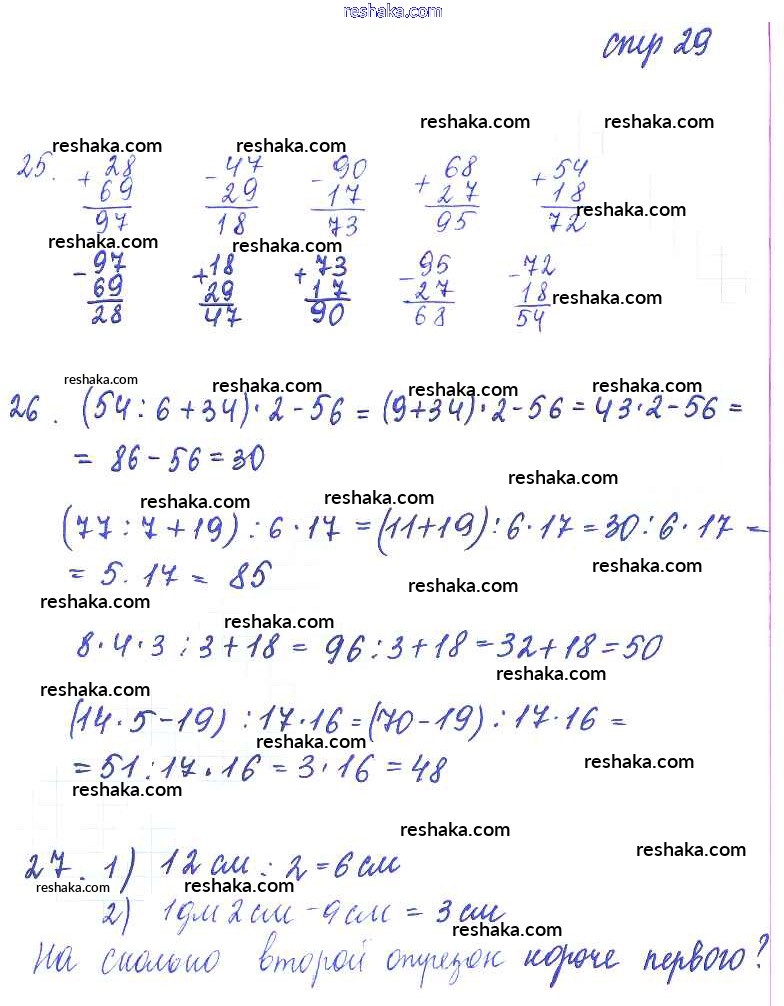 reshaka.com
стр 29
reshaka.com reshaka.com
reshaka.com reshaka.com
25. + 28 - 47 - 90 + 68 + 54
69 29 17 27 18
reshaka.com
97 18 73 95 72
reshaka.com reshaka.com
- 97 + 18 + 73 - 95 - 72
69 29 17 27 18 reshaka.com
28 47 90 68 54
reshaka.com reshaka.com reshaka.com reshaka.com
26. (54 : 6 + 34) · 2 - 56 = (9 + 34) · 2 - 56 = 43 · 2 - 56 =
= 86 - 56 = 30
reshaka.com
reshaka.com reshaka.com
(77 : 7 + 19) : 6 · 17 = (11 + 19) : 6 · 17 = 30 : 6 · 17 =
reshaka.com
= 5 · 17 = 85
reshaka.com
reshaka.com
reshaka.com
8 · 4 · 3 : 3 + 18 = 96 : 3 + 18 = 32 + 18 = 50
reshaka.com
reshaka.com
(14 · 5 - 19) : 17 · 16 = (70 - 19) : 17 · 16 =
reshaka.com
reshaka.com
= 51 : 17 · 16 = 3 · 16 = 48
reshaka.com
reshaka.com
reshaka.com
27. 1) 12 см : 2 = 6 см
reshaka.com
2) 1 дм 2 см - 9 см = 3 см
reshaka.com
На сколько второй отрезок короче первого?